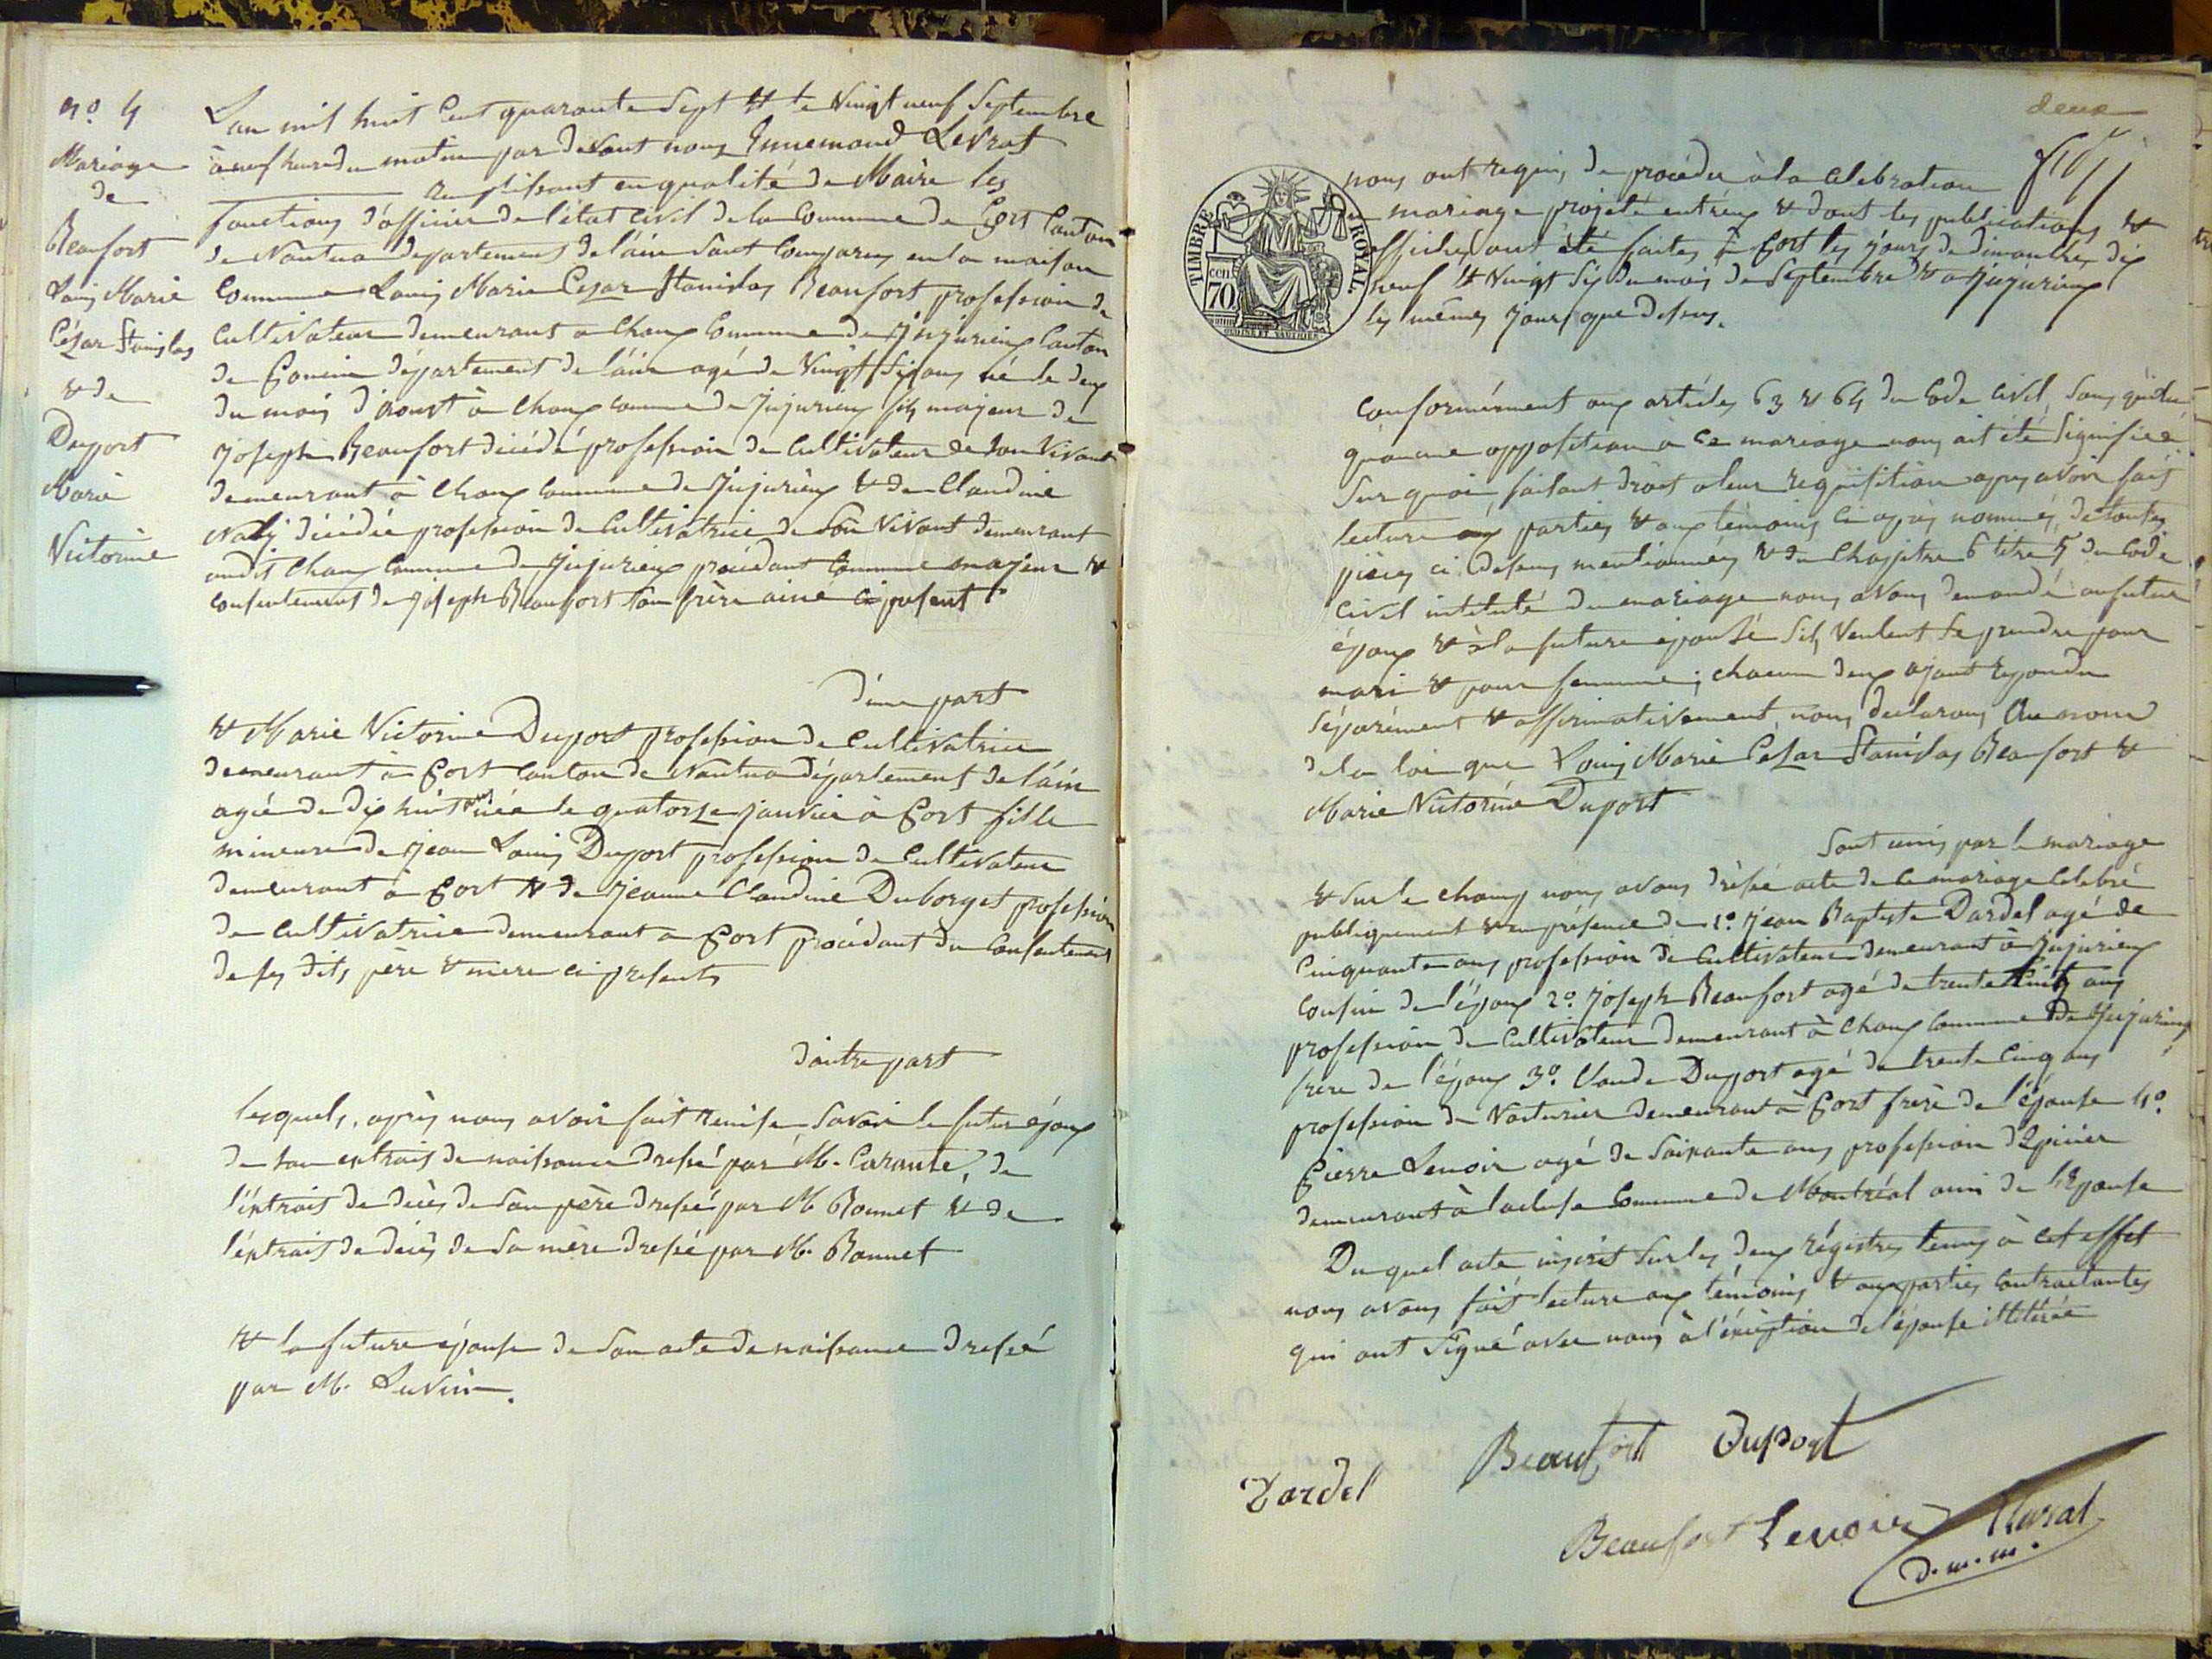 n.o 4
Mariage
de
Beaufort
Louis Marie
César Stanislas
& de
Duport
Marie
Victorine
L'an mil huit Cent quarante Sept & le Vingt neuf Septembre
à neuf heures du matin par devant nous Ennemond Levrat
remplissant en qualité de Maire les
fonctions d'officier de l'état Civil de la Commune de Port Canton
de Nantua departement de l'ain sont Comparus en la maison
Commune Louis Marie Cesar Stanislas Beaufort profession de
Cultivateur demeurant a Chaux Commune de Jujurieux Canton
de Poncin département de l'ain agé de Vingt Six ans né le deux
du mois d'aoust à Chaux commune de Jujurieux fils majeur de
Joseph Beaufort décédé profession de Cultivateur de son Vivant
demeurant à Chaux Commune de Jujurieux & de Claudine
décédée profession de Cultivatrice de Son Vivant demeurant
audit Chaux Commune de Jujurieux procédant Comme majeur &
consentement de Joseph Beaufort son frère ainé ci présent
d'une part
& Marie Victorine Duport profession de Cultivatrice
demeurant à Port Canton de Nantua département de l'ain
agée de dix huit ans née le quatorze janvier à Port fille
mineure de Jean Louis Duport profession de Cultivateur
demeurant à Port & de Jeanne Claudine Duborget profession
de Cultivatrice demeurant a Port procédant du Consentement
de ses dits père & mère ci presents
d'autre part
lesquels, après nous avoir fait remise Savoir le futur époux
de son extrait de naissance dressé par M. de
l'extrait de décès de Son père dressé par M. Bonnet & de
l'extrait de décès de Sa mère dressé par M. Bonnet
& la future épouse de Son acte de naissance dressé
par M.
deux
TIMBRE ROYAL
cen 70
nous ont requis de procéder à la Celebration
mariage projeté entr'eux & dont les publications &
affiches ont été faites à Port les jours de dimanches dix
neuf & Vingt Six du mois de Septembre & a Jujurieux
les mêmes jours que dessus.
Conformément aux articles 63 & 64 du Code Civil Sans
qu'aucune opposition à Ce mariage nous ait été Signifiée
Sur quoi faisant droit a leur requisition apres avoir fait
lecture aux parties & aux temoins ci après nommés, de toutes
pièces ci dessus mentionnées & du Chapitre 6 titre 5 du Code
Civil intitulé du mariage nous avons demandé au futur
époux & à la future épouse S'ils Veulent Se prendre pour
mari & pour femme; chacun d'eux ayant repondu
Séparément & affirmativement, nous declarons Au nom
de la loi que Louis Marie Cesar Stanislas Beaufort &
Marie Victorine Duport
Sont unis par le mariage
& Sur le champ nous avons dressé acte de Ce mariage Celebré
publiquement & en présence de 1.o Jean Baptiste Dardel agé de
Cinquante ans profession de Cultivateur demeurant à Jujurieux
Cousin de l'époux 2.o Joseph Beaufort agé de trente Cinq ans
profession de Cultivateur demeurant à Chaux Commune de Jujurieux
frère de l'époux 3.o Claude Duport agé de trente Cinq ans
profession de Voiturier demeurant à Port frère de l'épouse 4.o
Pierre Lenoir agé de Soixante ans profession d'Epicier
demeurant à lacluse Commune de Montréal ami de l'Epouse
Du quel acte inscrit Sur les deux régistres tenus à Cet effet
nous avons fait lecture aux témoins & aux parties Contractantes
qui ont Signé avec nous à l'exception de l'épouse illitérée
Dardel
Beaufort
Duport
Beaufort
Lenoir
Levrat
d. m. m.